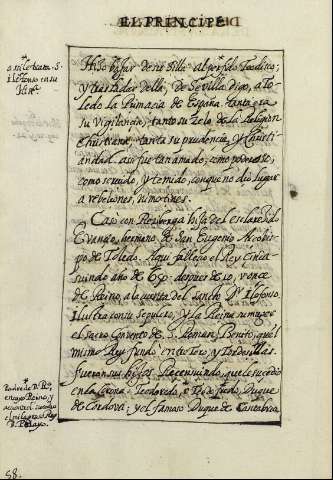 EL PRINCIPE
Hizo bajar de su silla al perfido Teodisco;
y trasladar della, de Sevilla digo, a To-
ledo la Primacia de España. tanta era
su Vigilancia; tanto su Zelo de la Religion
Christiana; tanta su prudencia, y Christi-
andad. asi fue tan amado; como poderoso,
como servido, y temido, conque no dio lugar
a rebeliones, ni motines.
Caso con Reciberga hija del esclarecido
Evancio, hermano de San Eugenio Arcobis-
po de Toledo. Aqui fallecio el Rey Cinda-
suindo año de 650. despues de 10, y once
de Reino, a la cuenta del Sancto Dr Ilefonso.
Ilustra con su Sepulcro, y la Reina su muger
el sacro Convento de S. Roman, Benito, que el
mismo Rey fundo entre Toro, y Tordesillas.
fueron sus hijos Recensuindo, que le sucedio
en la Corona: Teodofredo, o Teodefredo, Duque
de Cordova; y el famoso Duque de Cantabria
S.
Ilefonso en su
Padre de D. Ro,
en cuyo Reino, y
sucedio
el milagroso Rey
Pelayo.
58.